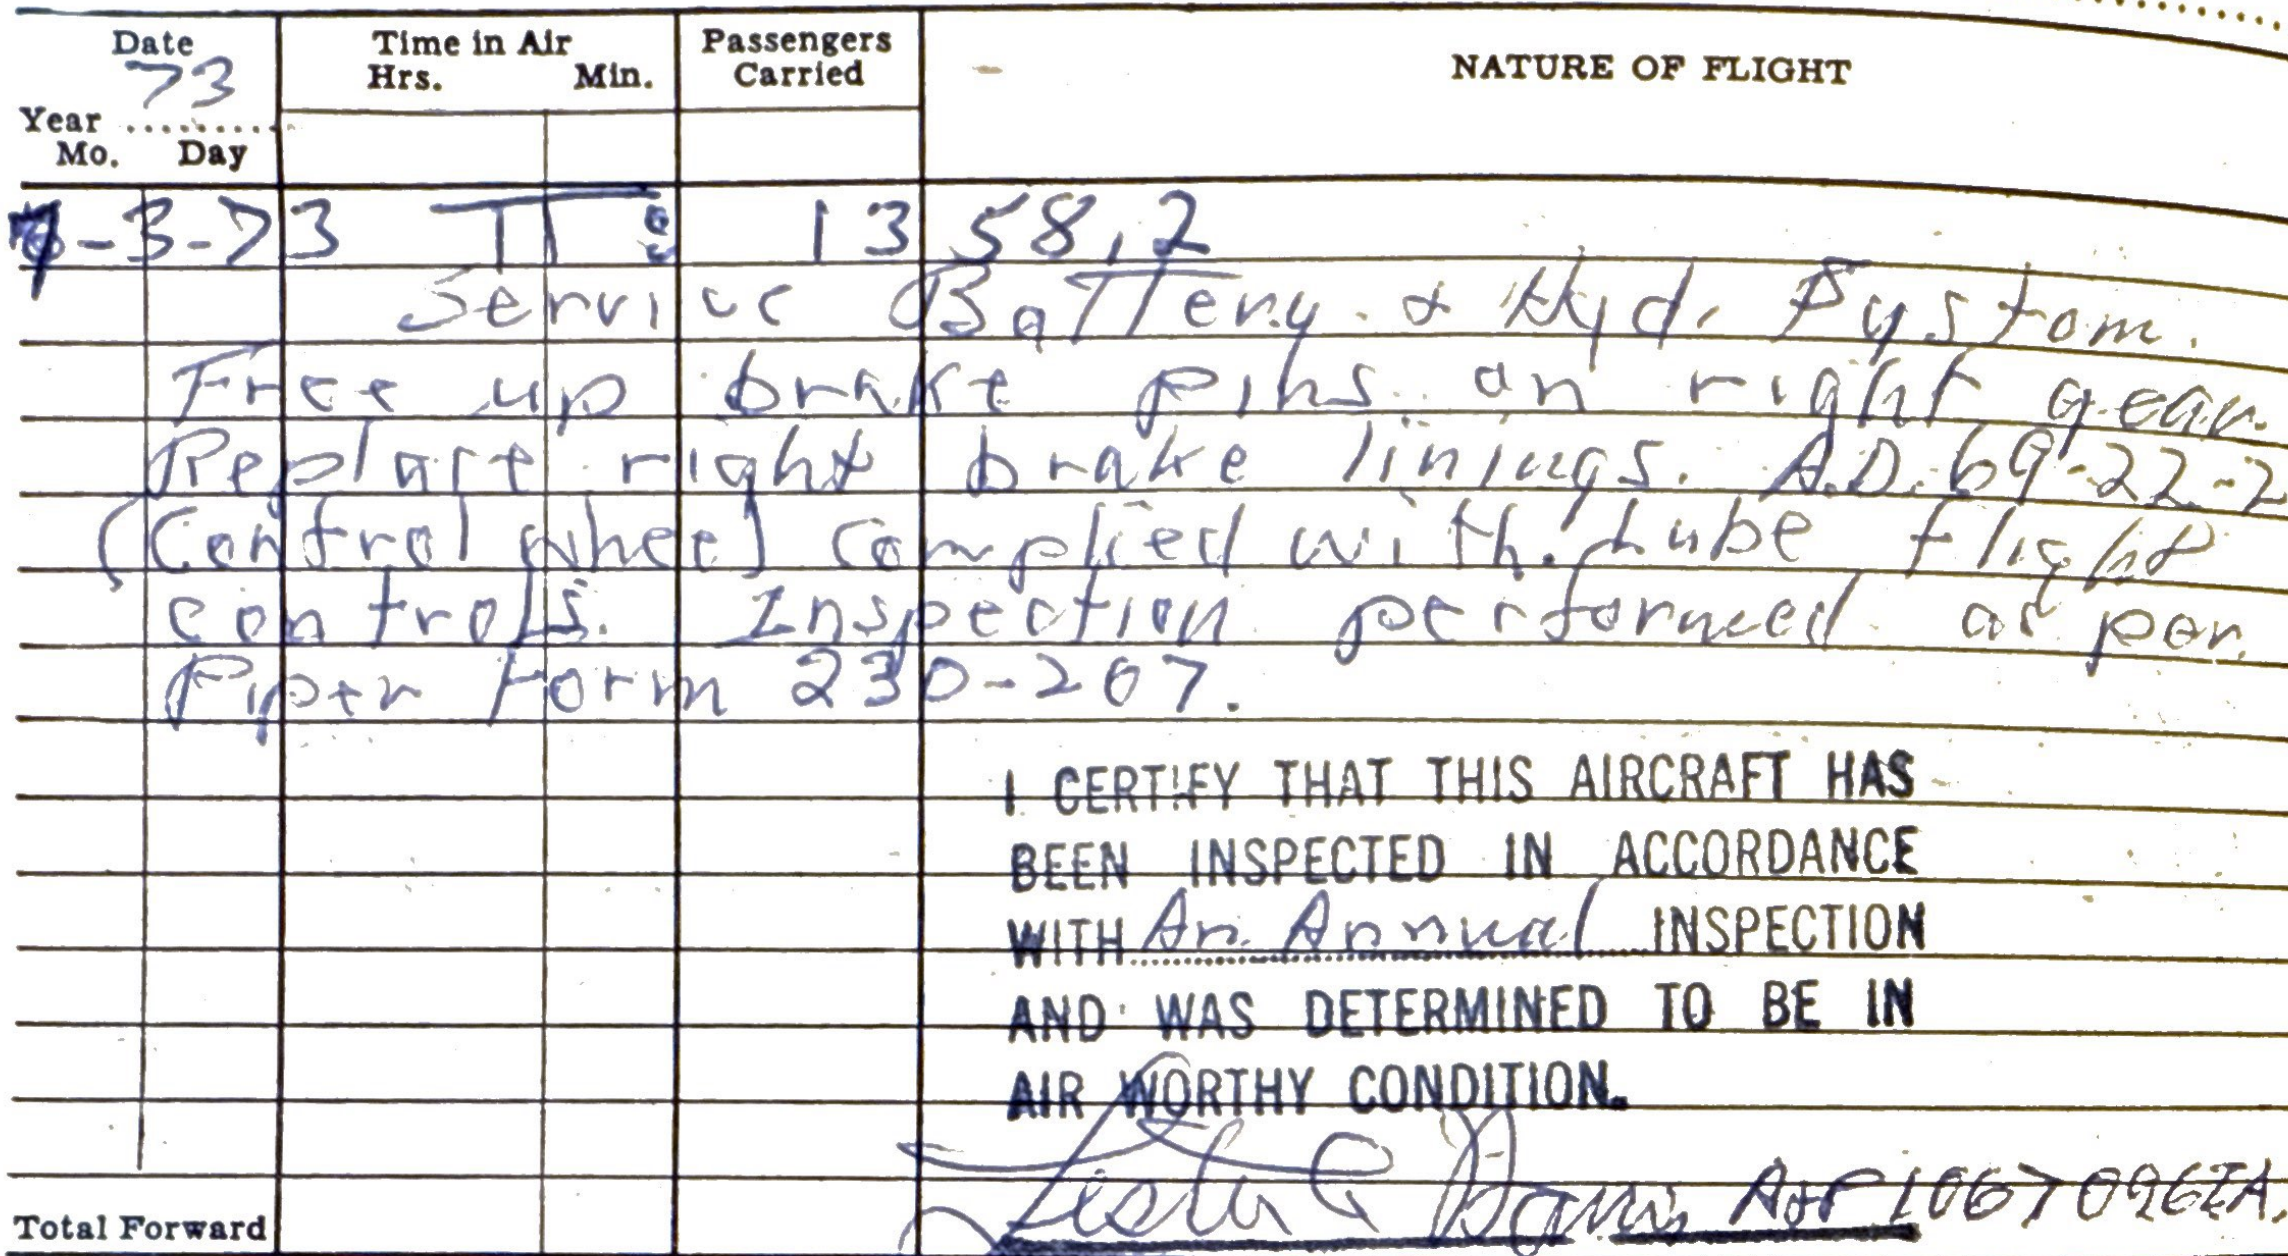 Date Time in Air Passengers
73 Hrs. Min. Carried NATURE OF FLIGHT
Year
Mo. Day
7-3-73 TT: 1358.2
Service Battery & Hyd. System.
Free up brake pins on right gear.
Replace right brake linings. A.D. 69-22-2
(Control wheel) complied with. Lube flight
controls. Inspection performed as per
Piper Form 230-207.
I CERTIFY THAT THIS AIRCRAFT HAS
BEEN INSPECTED IN ACCORDANCE
WITH An Annual INSPECTION
AND WAS DETERMINED TO BE IN
AIR WORTHY CONDITION.
A&P
Total Forward